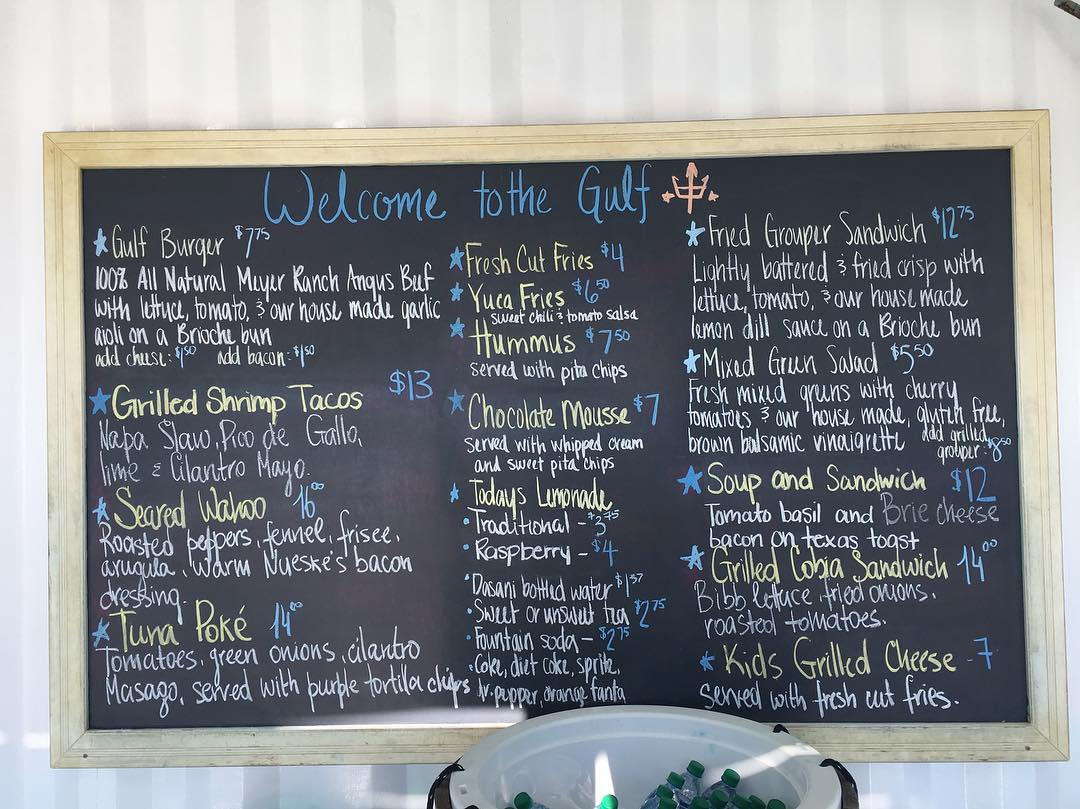 Welcome to the Gulf
Gulf Burger $7.75
100% All Natural Meyer Ranch Angus Beef
with lettuce, tomato, & our house made garlic
aioli on a Brioche bun
add cheese: $1.50 add bacon: $1.50
Grilled Shrimp Tacos $13
Napa Slaw, Pico de Gallo,
lime & Cilantro Mayo.
Seared Wahoo 16.00
Roasted peppers, fennel, frisee,
arugula, warm Nueske's bacon
dressing.
Tuna Poké 14.00
Tomatoes, green onions, cilantro
Masago, served with purple tortilla chips
Fresh Cut Fries $4
Yuca Fries $6.50
sweet chili & tomato salsa
Hummus $7.50
served with pita chips
Chocolate Mousse $7
served with whipped cream
and sweet pita chips
Todays Lemonade
Traditional - $3.75
Raspberry - $4
Dasani bottled water $1.37
Sweet or unsweet tea $2.75
Fountain soda - $2.75
Coke, diet coke, sprite,
dr. pepper, orange fanta
Fried Grouper Sandwich $12.75
Lightly battered & fried crisp with
lettuce, tomato, & our house made
lemon dill sauce on a Brioche bun
Mixed Green Salad $5.50
Fresh mixed greens with cherry
tomatoes & our house made, gluten free,
brown balsamic vinaigrette add grilled
grouper: $8.50
Soup and Sandwich $12
Tomato basil and Brie cheese
bacon on texas toast
Grilled Cobia Sandwich 14.00
Bibb lettuce, fried onions,
roasted tomatoes.
Kids Grilled Cheese - 7
served with fresh cut fries.